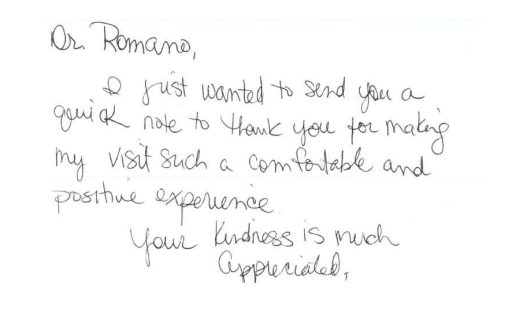 Dr. Romano,
I just wanted to send you a
quick note to thank you for making
my visit such a comfortable and
positive experience.
Your kindness is much
appreciated,